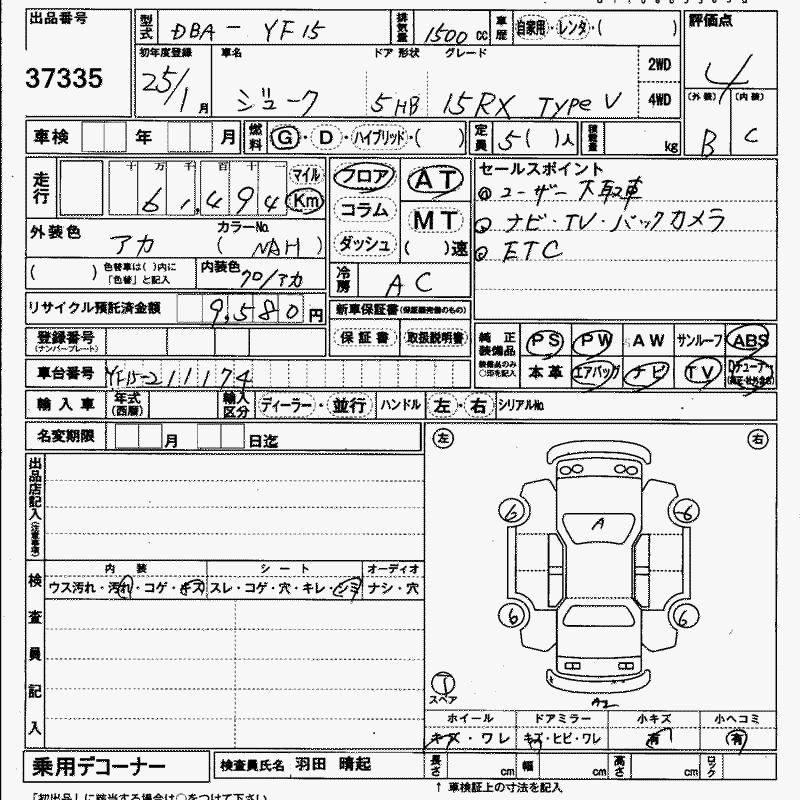 出品番号
37335
型式 DBA - YF15
排気量 1500 cc
車歴 自家用・レンタ・( )
評価点
4
(外装) (内装)
B C
初年度登録 車名 ドア 形状 グレード
25/1月 ジューク 5 HB 15RX TYPE V
2WD
4WD
車検 年 月
燃料 G・D・ハイブリッド・( )
定員 5( )人
積載量 kg
走行 十 万 千 百 十 一
61,494
マイル
Km
フロア
コラム
ダッシュ
AT
MT
( )速
セールスポイント
ユーザー下取車
ナビ・TV・バックカメラ
ETC
外装色 アカ
カラーNo.
( NAH )
( ) 色替車は( )内に「色替」と記入
内装色 クロ/アカ
冷房 AC
リサイクル預託済金額 9,580 円
新車保証書(保証継続完備のもの)
保証書 取扱説明書
登録番号
(ナンバープレート)
純正装備品 PS PW AW サンルーフ ABS
装備品のみ○印を記入 本革 エアバッグ ナビ TV
車台番号 YF15-211174
輸入車 年式(西暦) 輸入区分 ディーラー・並行 ハンドル 左・右 シリアルNo.
名変期限 月 日迄
左 右
出品店記入(注意事項)
検査員記入
内装 シート オーディオ
ウス汚れ・汚れ・コゲ・キズ スレ・コゲ・穴・キレ・シミ ナシ・穴
A
6 6
6 6
T
スペア
A2
ホイール ドアミラー 小キズ 小ヘコミ
キズ・ワレ キズ・ヒビ・ワレ 有 有
乗用デコーナー
検査員氏名 羽田 晴起
長さ cm 幅 cm 高さ cm ロック
↑ 車検証上の寸法を記入
「初出品」に該当する場合は○をつけて下さい